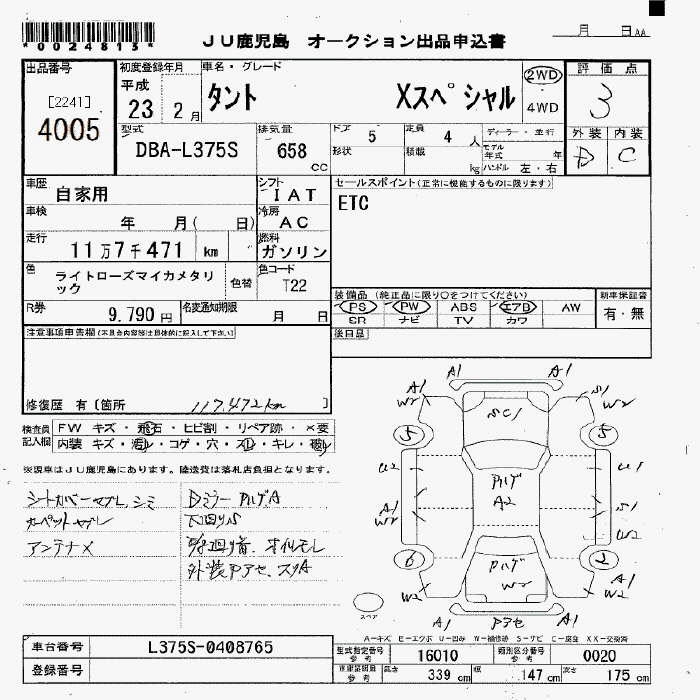 *0024813*
JU鹿児島 オークション出品申込書
月 日 AA
出品番号
[2241]
4005
初度登録年月
平成
23 2 月
車名・グレード
タント Xスペシャル
2WD
4WD
評価点
3
外装 内装
D C
型式
DBA-L375S
排気量
658 cc
ドア 5
形状
定員 4 人
積載 kg
ディーラー・並行
モデル年式 年
ハンドル 左・右
車歴
自家用
シフト
I AT
車検
年 月( 日)
冷房
AC
走行
11万7千471 km
燃料
ガソリン
色
ライトローズマイカメタリック
色替
色コード
T22
R券
9,790 円
名変通知期限
月 日
セールスポイント(正常に機能するものに限ります)
ETC
装備品 (純正品に限り○をつけてください)
PS PW ABS エアB AW
SR ナビ TV カワ
新車保証書
有・無
後日品
注意事項申告欄(不具合内容等は具体的に記入して下さい)
修復歴 有〔箇所 117,472km 〕
検査員記入欄
FW キズ・飛石・ヒビ割・リペア跡・×要
内装 キズ・汚レ・コゲ・穴・スレ・キレ・破レ
※現車はJU鹿児島にあります。陸送費は落札店負担となります。
シートカバーヤブレ、シミ
カーペットヤブレ
アンテナ×
Dミラー ハゲA
下回りS
外装アアセ、スリA
A1 A1
A1 W2 S1 W2
SC1
5 5
U2 U1
ハゲ
A2
A1 W2 S1
W2
6 2
ハゲ
W2
W2 A1
A1 アアセ A1
スペア
A-キズ E-エクボ U-凹み W-補修跡 S-サビ C-腐食 XX-交換済
車台番号 L375S-0408765
登録番号
型式指定番号 参考 16010
類別区分番号 参考 0020
車庫証明用 参考
長さ 339 cm 幅 147 cm 高さ 175 cm